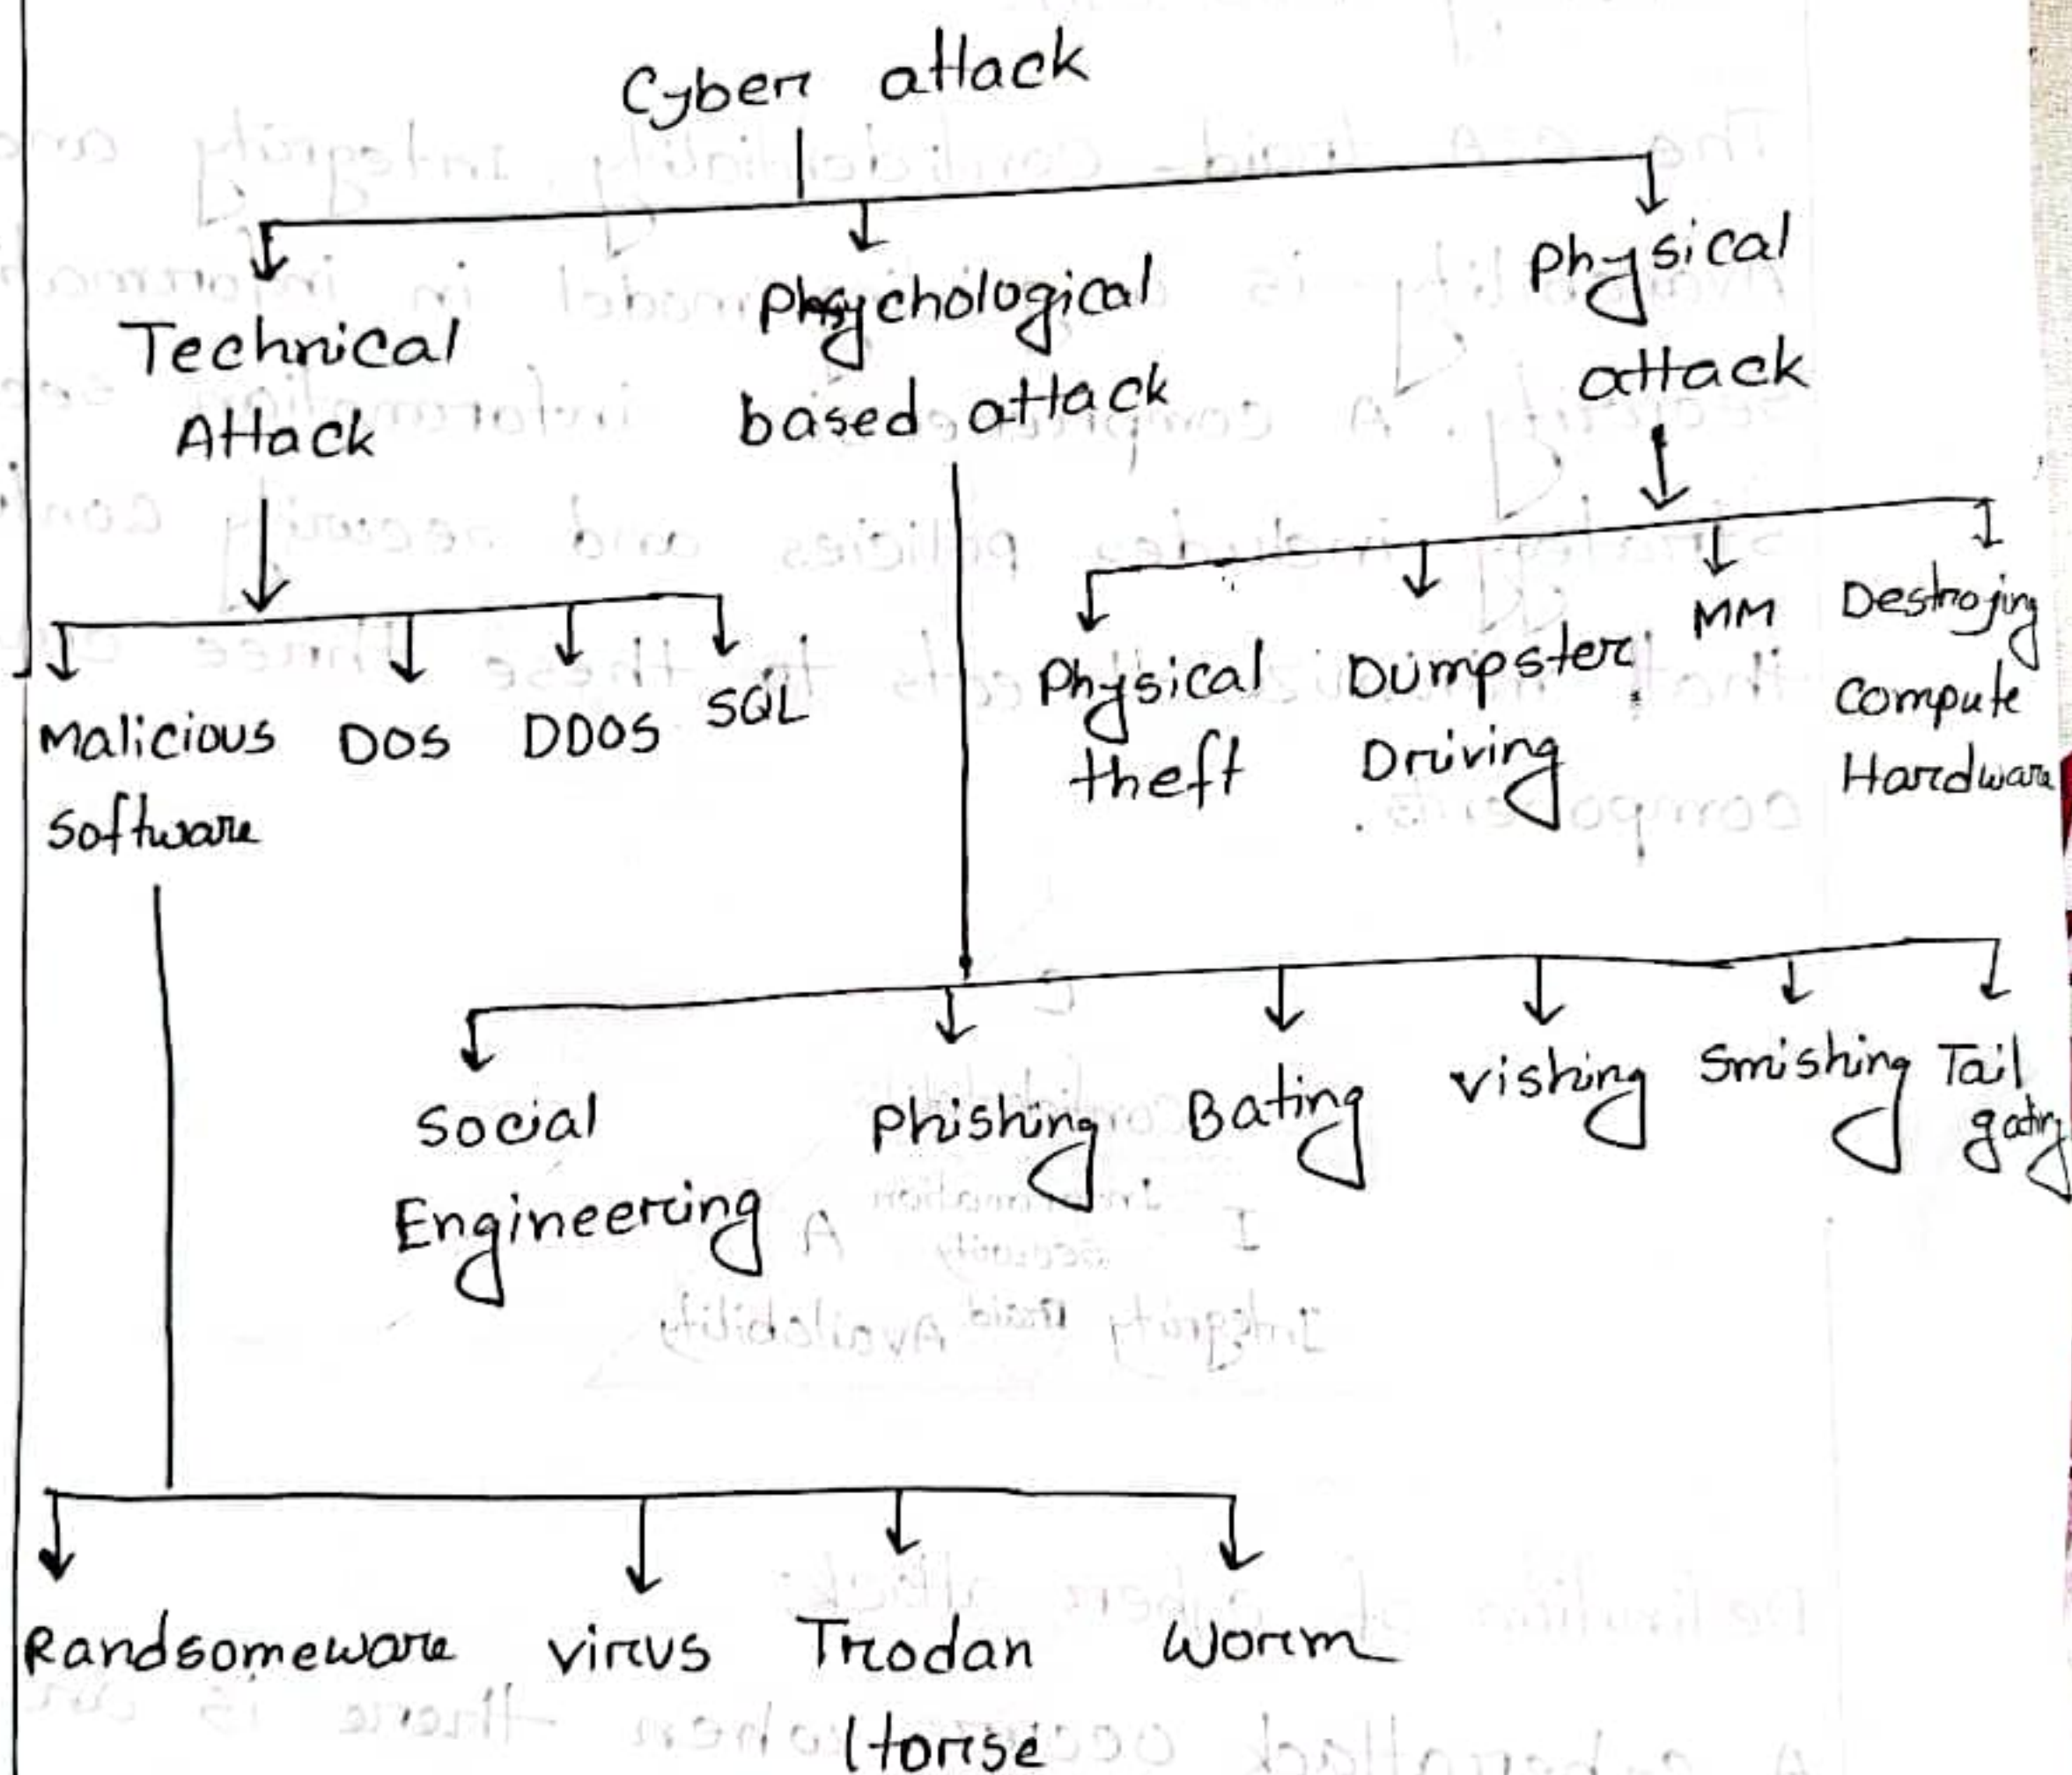 Cyber attack
Technical
Attack
Phsychological
based attack
Physical
attack
Malicious
software
DOS
DDOS
SQL
Physical
theft
Dumpster
Driving
MM
Destrojing
Compute
Hardware
Social
Engineering
Phishing
Bating
vishing
Smishing
Tail
gating
Randsomeware
virus
Trodan
Horse
Worm